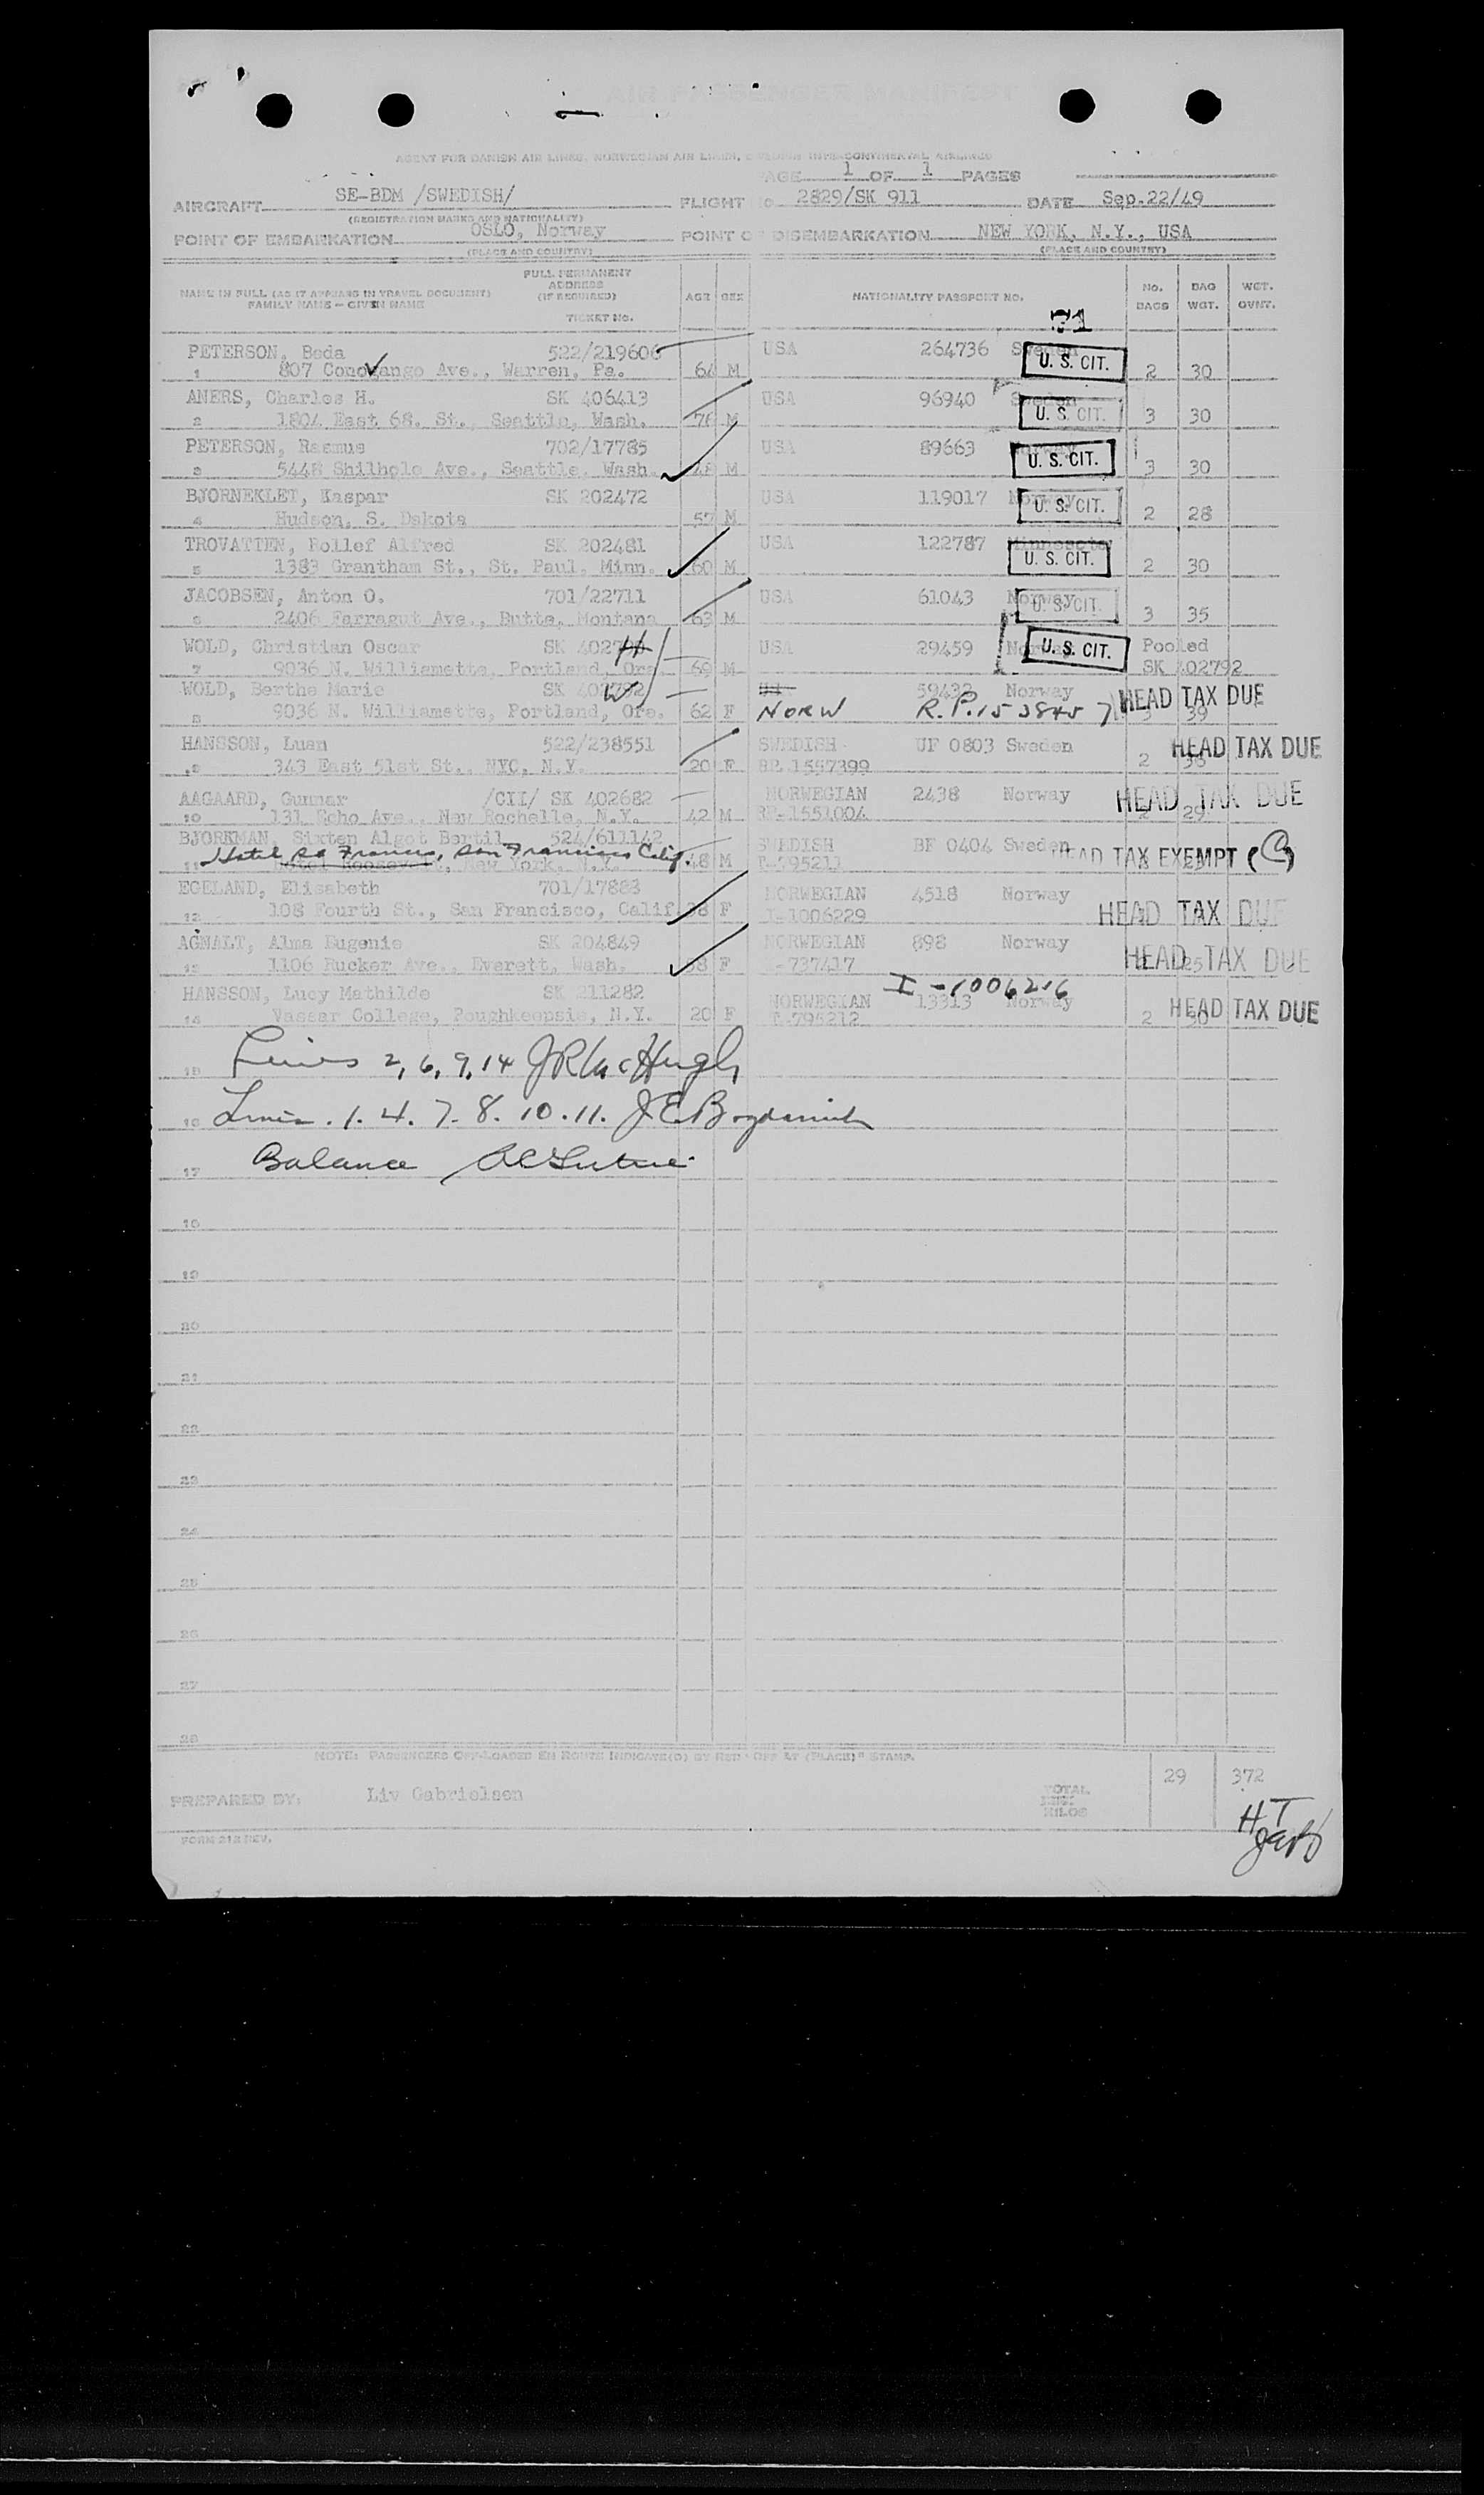 AIR PASSENGER MANIFEST
AGENT FOR DANISH AIR LINES, NORWEGIAN AIR LINES, SWEDISH INTERCONTINENTAL AIRLINES
PAGE 1 OF 1 PAGES
AIRCRAFT SE-BDM /SWEDISH/ FLIGHT No. 2829/SK 911 DATE Sep.22/49
(REGISTRATION MARKS AND NATIONALITY)
POINT OF EMBARKATION OSLO, Norway POINT OF DISEMBARKATION NEW YORK, N.Y., USA
(PLACE AND COUNTRY) (PLACE AND COUNTRY)
NAME IN FULL (AS IT APPEARS IN TRAVEL DOCUMENT) FAMILY NAME — GIVEN NAME FULL PERMANENT ADDRESS (IF REQUIRED) TICKET No. AGE SEX NATIONALITY PASSPORT NO. No. BAGS BAG WGT. WGT. OVNT.
71
PETERSON, Beda 522/219606 USA 264736 Sweden U. S. CIT.
1 807 Conowango Ave., Warren, Pa. 64 M 2 30
ANERS, Charles H. SK 406413 USA 96940 Sweden U. S. CIT.
2 1804 East 68. St., Seattle, Wash. 76 M 3 30
PETERSON, Rasmus 702/17785 USA 89663 Norway U. S. CIT.
3 5448 Shilhole Ave., Seattle, Wash. 48 M 3 30
BJORNEKLET, Kaspar SK 202472 USA 119017 Norway U. S. CIT.
4 Hudson, S. Dakota 57 M 2 28
TROVATTEN, Rollef Alfred SK 202481 USA 122787 Minnesota U. S. CIT.
5 1383 Grantham St., St. Paul, Minn. 60 M 2 30
JACOBSEN, Anton O. 701/22711 USA 61043 Norway U. S. CIT.
6 2406 Farragut Ave., Butte, Montana 63 M 3 35
WOLD, Christian Oscar SK H USA 29459 Norway U. S. CIT. Pooled
7 9036 N. Williamette, Portland, Ore. 69 M SK 402792
WOLD, Berthe Marie SK 402792 W 59432 Norway HEAD TAX DUE
8 9036 N. Williamette, Portland, Ore. 62 F NORW R.P. 39
HANSSON, Luan 522/238551 SWEDISH UF 0803 Sweden HEAD TAX DUE
9 343 East 51st St., NYC, N.Y. 20 F RP-1557399 2
AAGAARD, Gunnar /CII/ SK 402682 NORWEGIAN 2438 Norway HEAD TAX DUE
10 131 Echo Ave., New Rochelle, N.Y. 42 M RP-1551004 2 29
BJORKMAN, Sixten Algot Bertil 524/611142 SWEDISH BF 0404 Sweden HEAD TAX EXEMPT (C)
11 Hotel Roosevelt, New York, N.Y. Hotel St Francis, San Francisco Calif. 48 M T-795211
EGELAND, Elisabeth 701/17883 NORWEGIAN 4518 Norway HEAD TAX DUE
12 108 Fourth St., San Francisco, Calif 38 F I-1006229
AGNALT, Alma Eugenie SK 204849 NORWEGIAN 898 Norway HEAD TAX DUE
13 1106 Rucker Ave., Everett, Wash. 58 F -737417 25
I-1006216
HANSSON, Lucy Mathilde SK 211282 NORWEGIAN 13313 Norway HEAD TAX DUE
14 Vassar College, Poughkeepsie, N.Y. 20 F T-795212 2 30
15 Lines 2, 6, 9, 14 JR McHugh
16 Lines. 1. 4. 7. 8. 10. 11. J.E.
17 Balance
18
19
20
21
22
23
24
25
26
27
28
NOTE: PASSENGERS OFF-LOADED EN ROUTE INDICATE(D) BY RED "OFF AT (PLACE)" STAMP.
PREPARED BY: Liv Gabrielsen TOTAL KILOS 29 372
HT
FORM 212 REV.